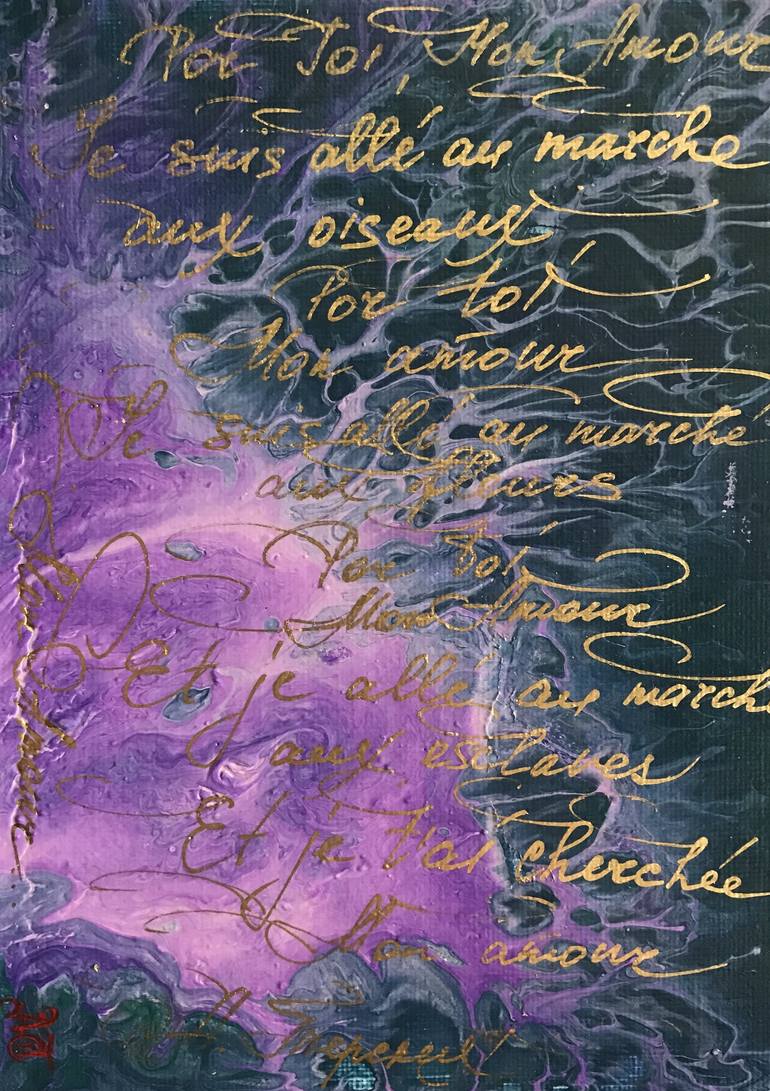 Por Toi, Mon Amour
Je suis allé au marche
aux oiseaux,
Por toi
Mon amour
Je suis allé au marché
aux fleurs
Por Toi,
Mon Amour
Et je allé au marche
aux esclaves
Et je t'ai cherchée
Mon amour
Mon Amour